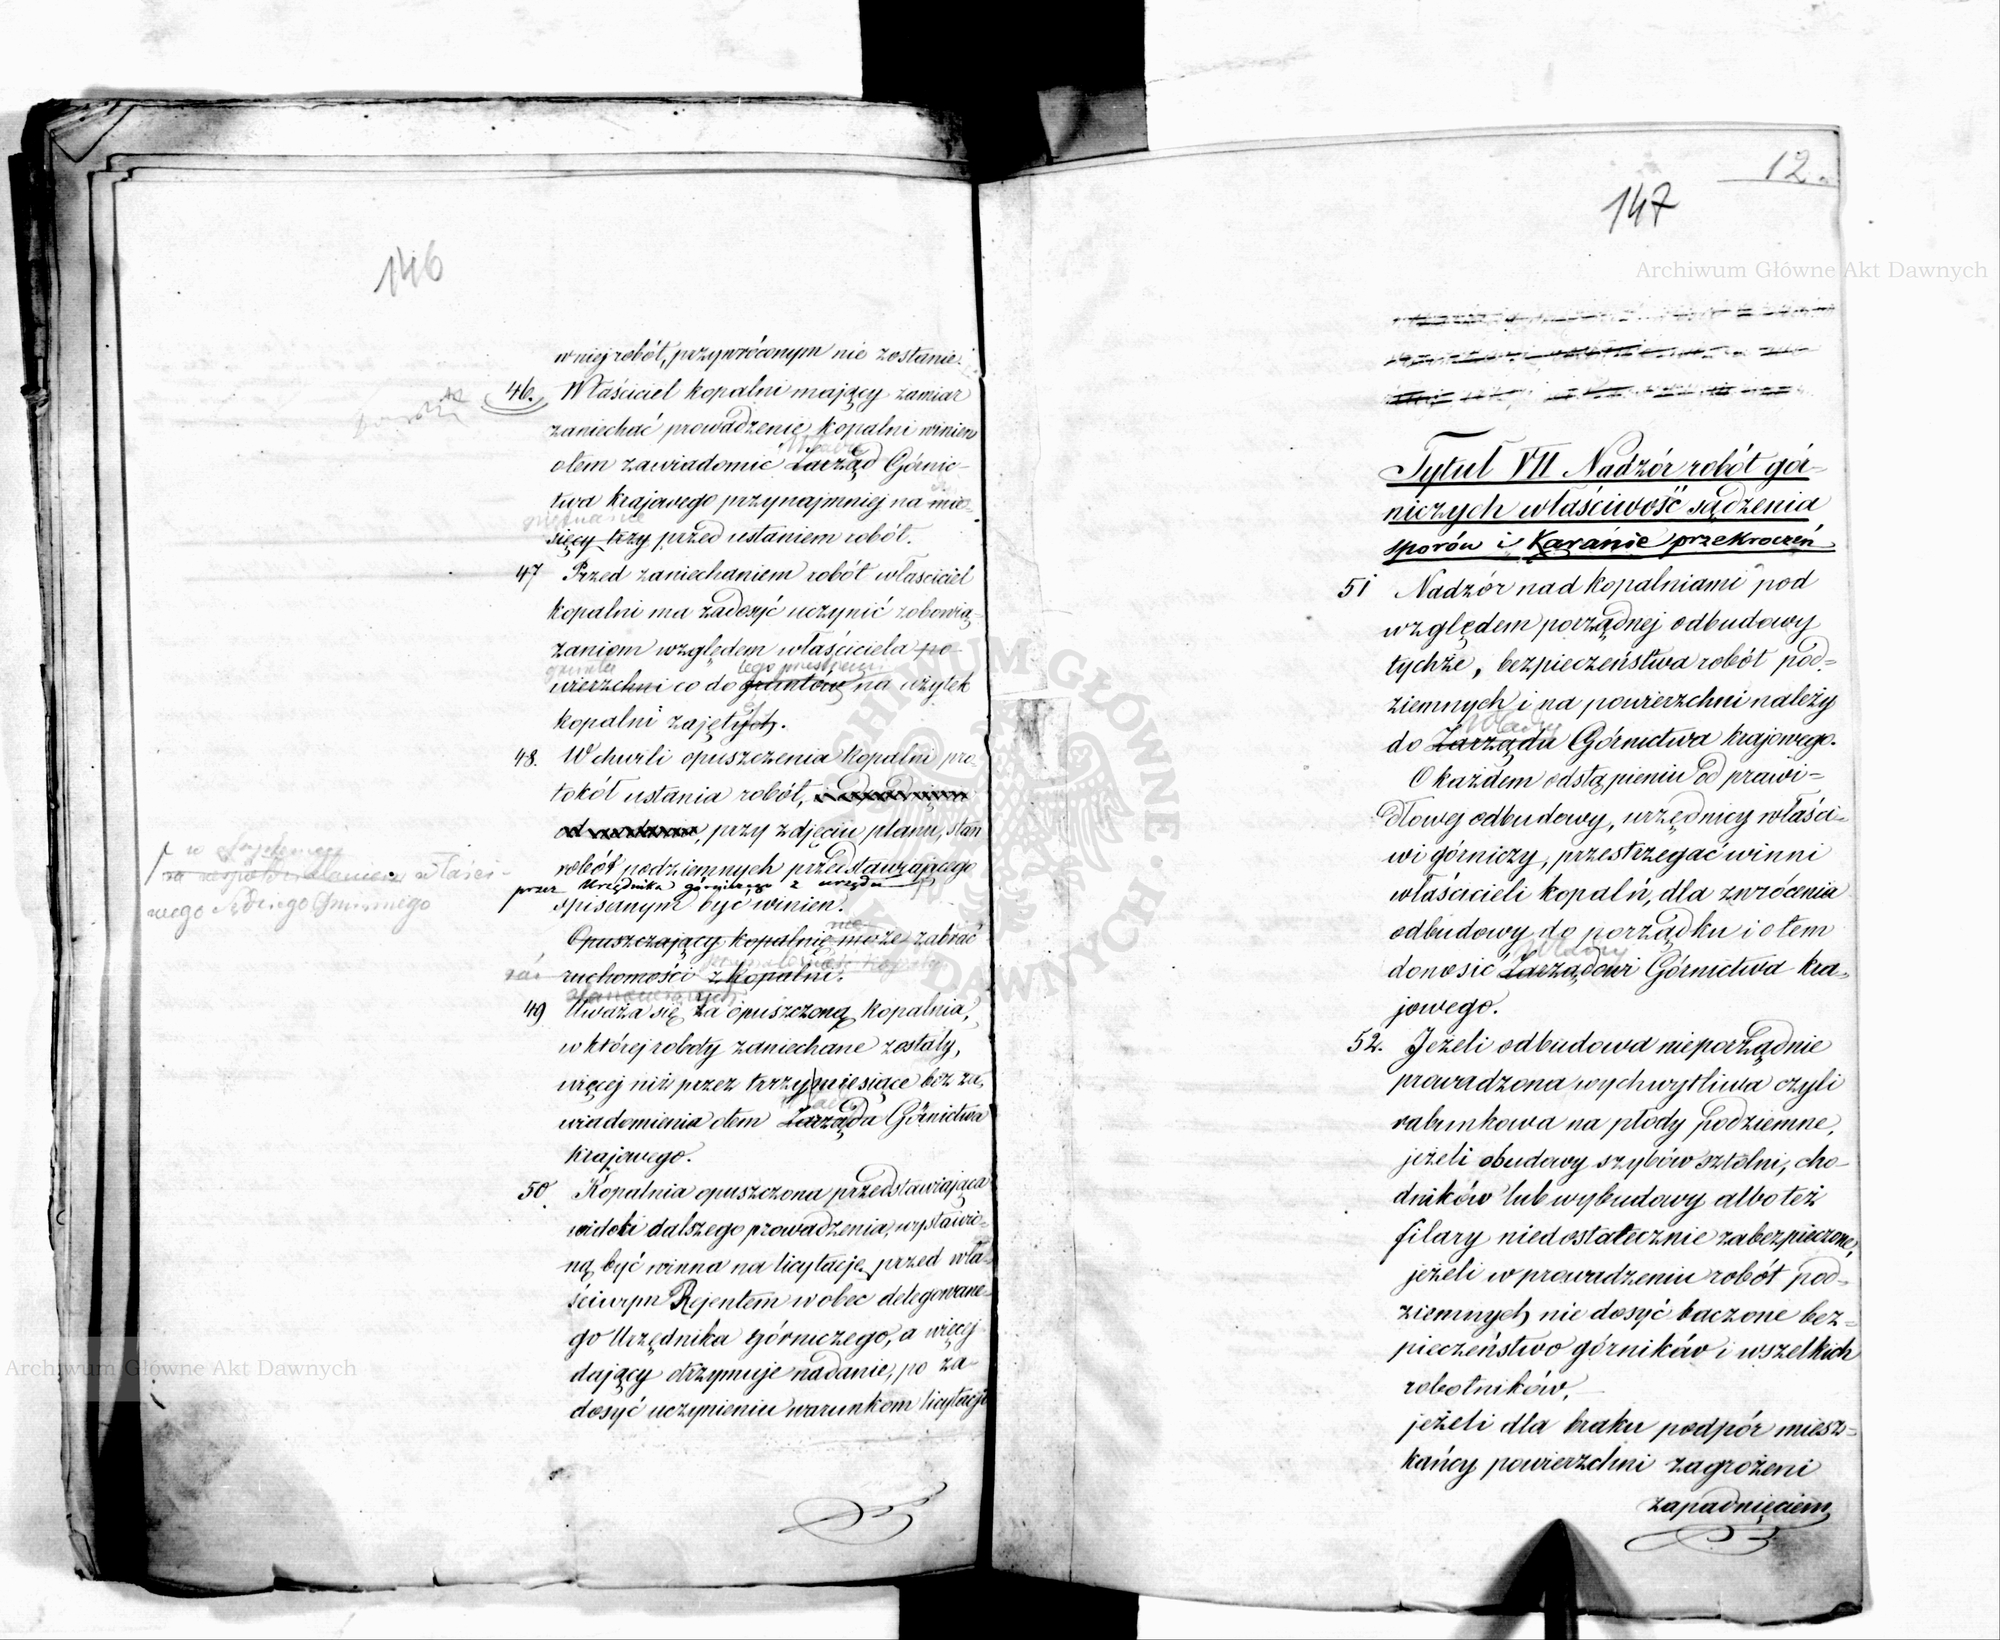 146
w niej robót, przywróconym nie zostanie.
46. Właściciel kopalni mający zamiar
zaniechać prowadzenie kopalni winien
Władzę
otem zawiadomić Zarząd Górnic-
twa krajowego przynajmniej na mie-
sięcy trzy przed ustaniem robót.
47 Przed zaniechaniem robót właściciel
kopalni ma zadosyć uczynić zobowią-
zaniom względem właściciela po-
gruntu tego
wierzchni co do gruntów na użytek
kopalni zajętych.
48. W chwili opuszczenia kopalni pro
tokół ustania robót,
przy zdjęciu planu, stan
robót podziemnych przedstawiającego
przez Urzędnika górniczego z urzędu
spisanym być winien.
w
za współdziałaniem właści-
wego Sędziego Gminnego
nie
Opuszczający kopalnię może zabrać
ruchomości z kopalni.
49 Uważa się za opuszczoną kopalnia,
w której roboty zaniechane zostały,
więcej niż przez trzy miesiące bez za-
wiadomienia otem Zarządu Górnictwa
krajowego.
50. Kopalnia opuszczona przedstawiająca
widoki dalszego prowadzenia, wystawio-
ną być winna na licytację przed wła-
ściwym Rejentem wobec delegowane-
go Urzędnika Górniczego, a więcej
dający otrzymuje nadanie, po za-
dosyć uczynieniu warunkom licytacji
12.
147
Tytuł VII Nadzór robót gór-
niczych właściwość sądzenia
sporów i Karanie przekroczeń
51 Nadzór nad kopalniami pod
względem porządnej odbudowy
tychże, bezpieczeństwa robót pod-
ziemnych i na powierzchni należy
Władzy
do Zarządu Górnictwa krajowego.
O każdem odstąpieniu od prawi-
dłowej odbudowy, urzędnicy właści-
wi górniczy, przestrzegać winni
właścicieli kopalń, dla zwrócenia
odbudowy do porządku i otem
Władzy
donosić Zarządowi Górnictwa kra-
jowego.
52. Jeżeli odbudowa nieporządnie
prowadzona wychwytliwa czyli
rabunkowa na płody podziemne,
jeżeli obudowy szybów sztolni, cho-
dników lub wybudowy albo też
filary niedostatecznie zabezpieczone,
jeżeli w prowadzeniu robót pod-
ziemnych nie dosyć baczone bez-
pieczeństwo górników i wszelkich
robotników,
jeżeli dla braku podpór miesz-
kańcy powierzchni zagrożeni
zapadnięciem
Archiwum Główne Akt Dawnych
Archiwum Główne Akt Dawnych
ARCHIWUM GŁÓWNE AKT DAWNYCH